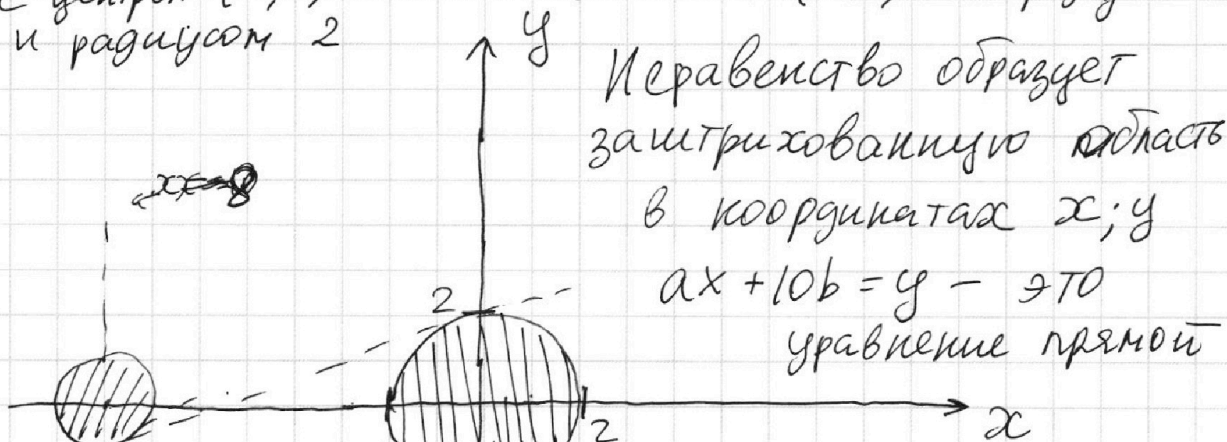 и радиусом 2
y
Неравенство образует
заштрихованную область
в координатах x; y
ax + 10b = y – это
уравнение прямой
2
2
x